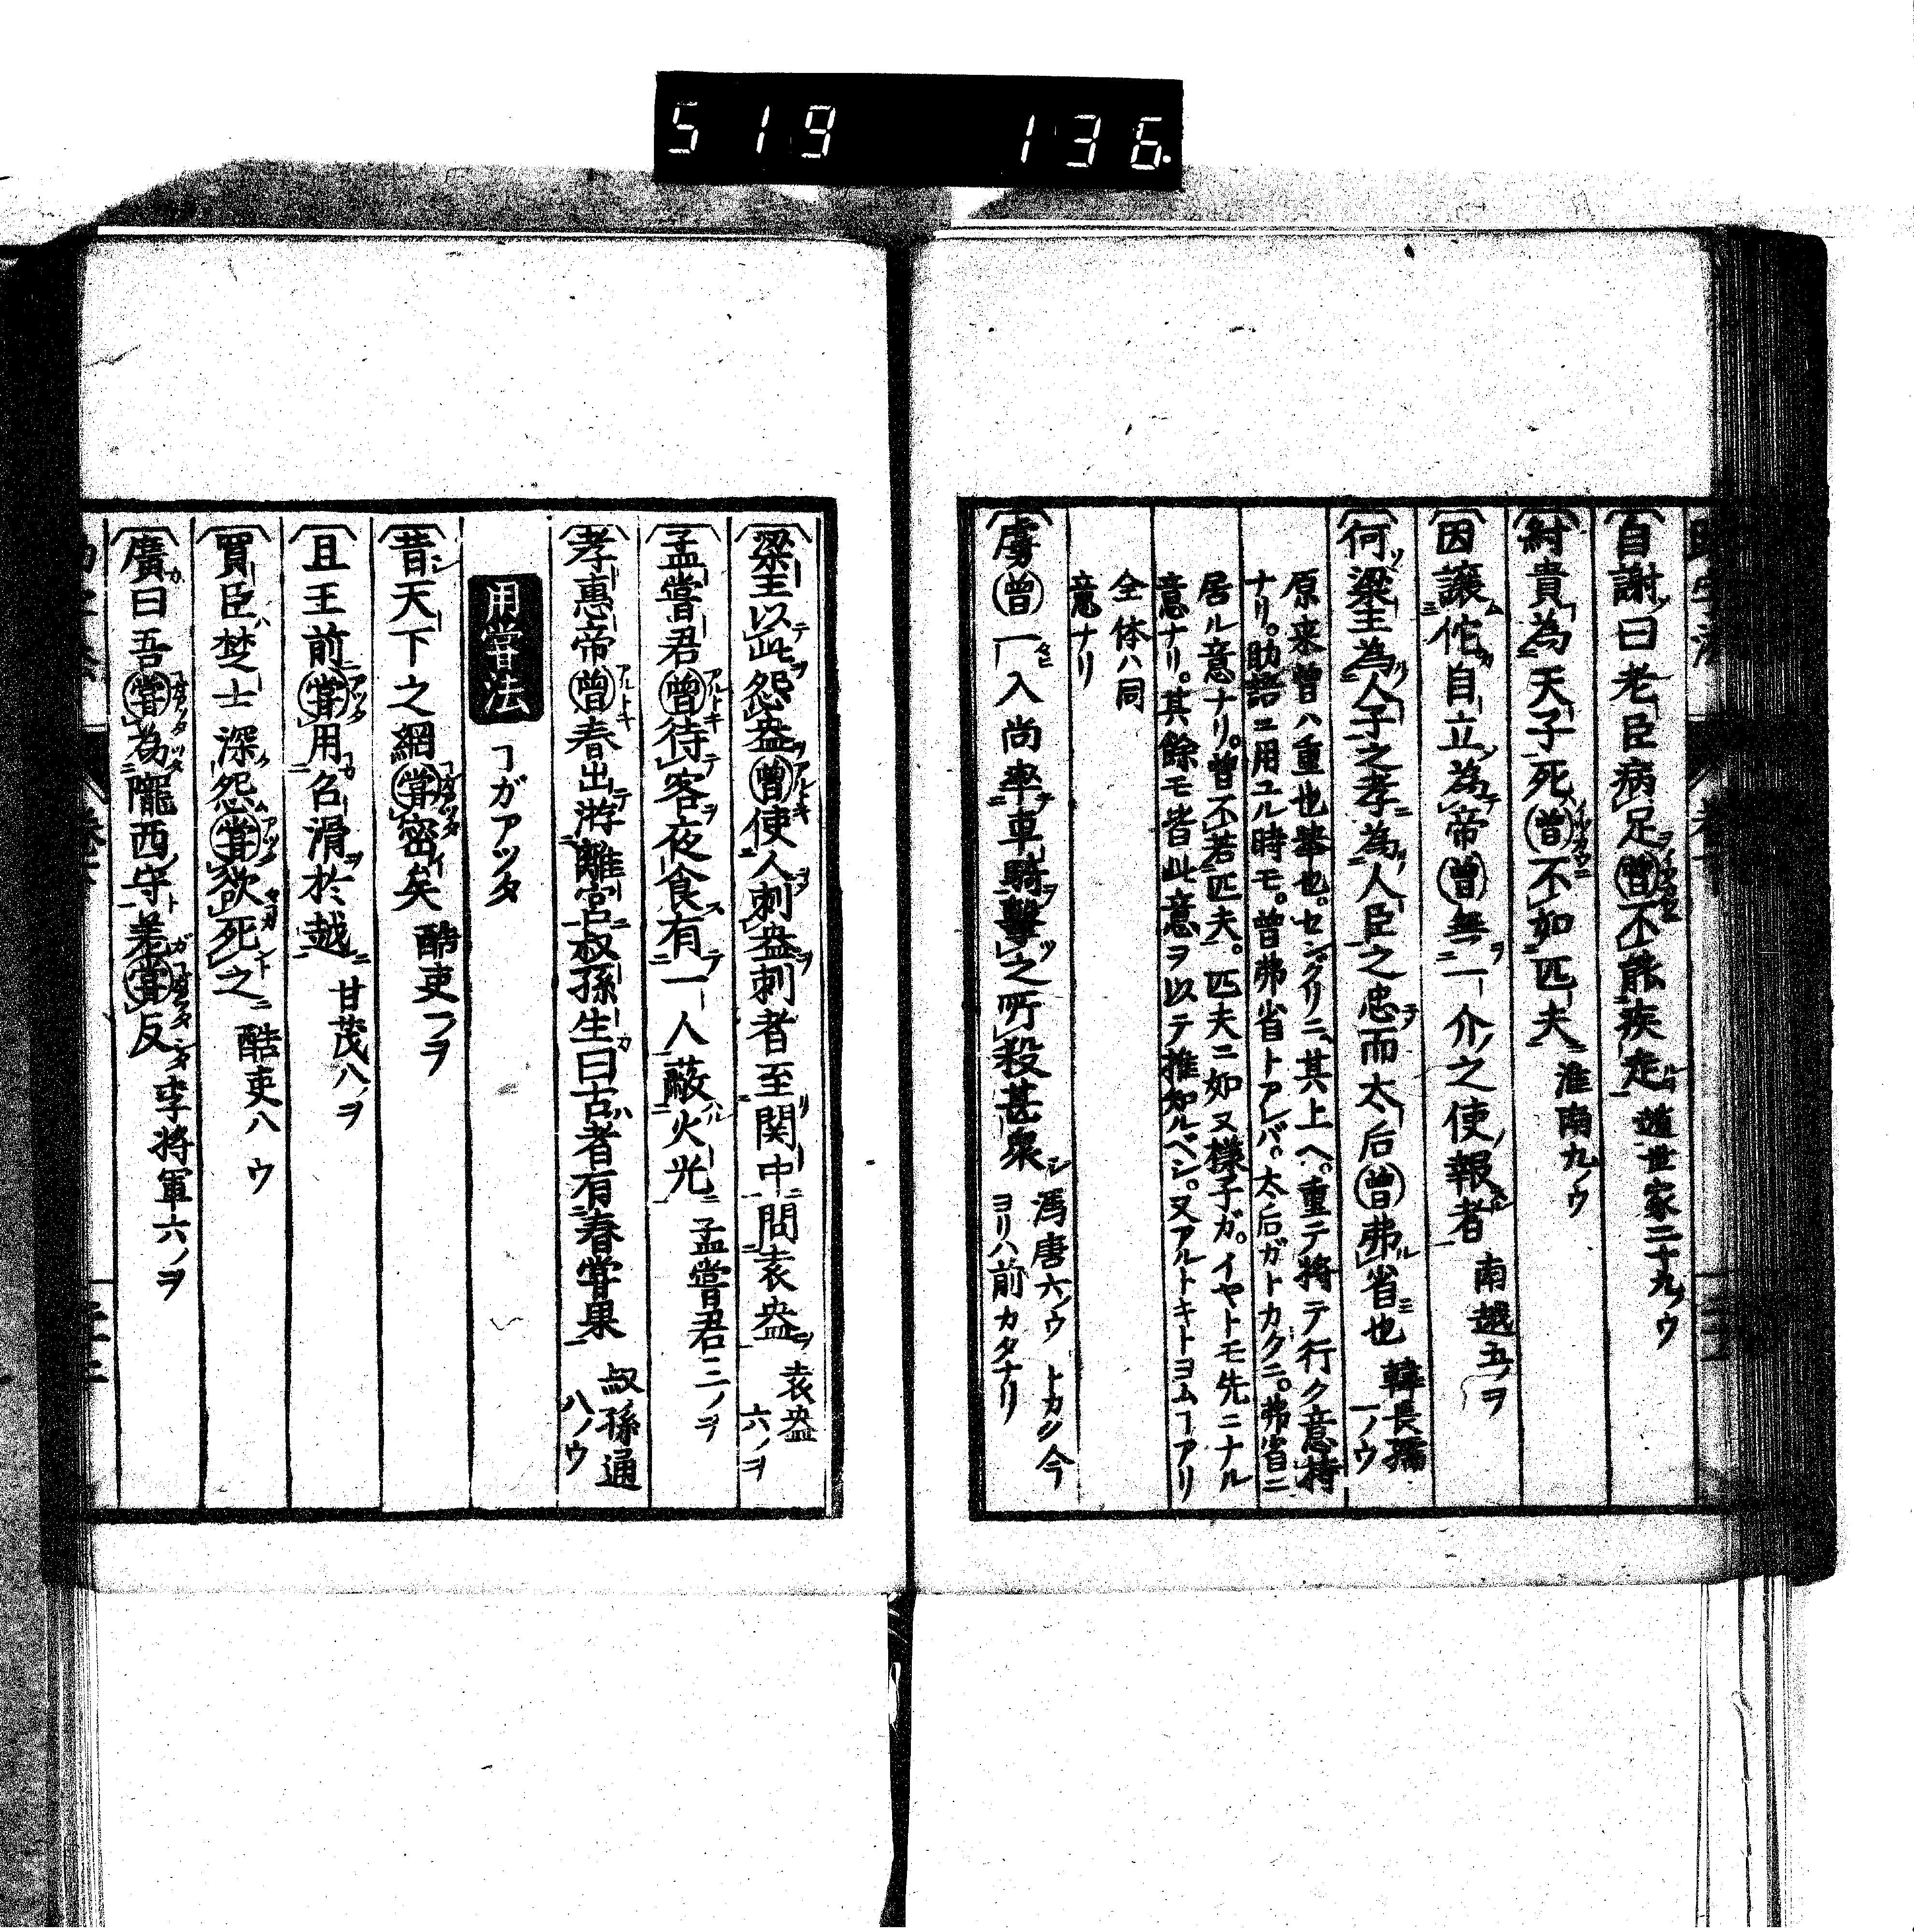 519 136
自謝曰老臣病足曾不能疾走 趙世家二十九ノウ
紂貴為天子死曾不如匹夫 淮南九ノウ
因讓佗自立為帝曾無一介之使報者 南越五ノヲ
何梁王為人子之孝為人臣之忠而太后曾弗省也 韓長孺一ノウ
原来曾ハ重也舉也。セングリニ、其上ヘ。重テ将テ行ク意持
ナリ。助語ニ用ユル時モ。曾弗省トアレバ。太后ガトカクニ。弗省ニ
居ル意ナリ。曾不若匹夫。匹夫ニ如ヌ樣子ガ。イヤトモ先ニナル
意ナリ。其餘モ皆此意ヲ以テ推知ルベシ。又アルトキトヨムヿアリ
全体ハ同
意ナリ
虜曾一入尚率車騎擊之所殺甚衆 馮唐六ノウ トカク今
ヨリハ前カタナリ
梁王以此怨盎曾使人刺盎刺者至関中問袁盎 袁盎六ノヲ
孟嘗君曾待客夜食有一人蔽火光 孟嘗君三ノヲ
孝惠帝曾春出游離宮叔孫生曰古者有春嘗果 叔孫通八ノウ
用嘗法 ヿガアツタ
昔天下之網嘗密矣 酷吏一ヲ
且王前嘗用召滑於越 甘茂八ノヲ
買臣楚士深怨嘗欲死之 酷吏八ウ
廣曰吾嘗為隴西守羌嘗反 李将軍六ノヲ